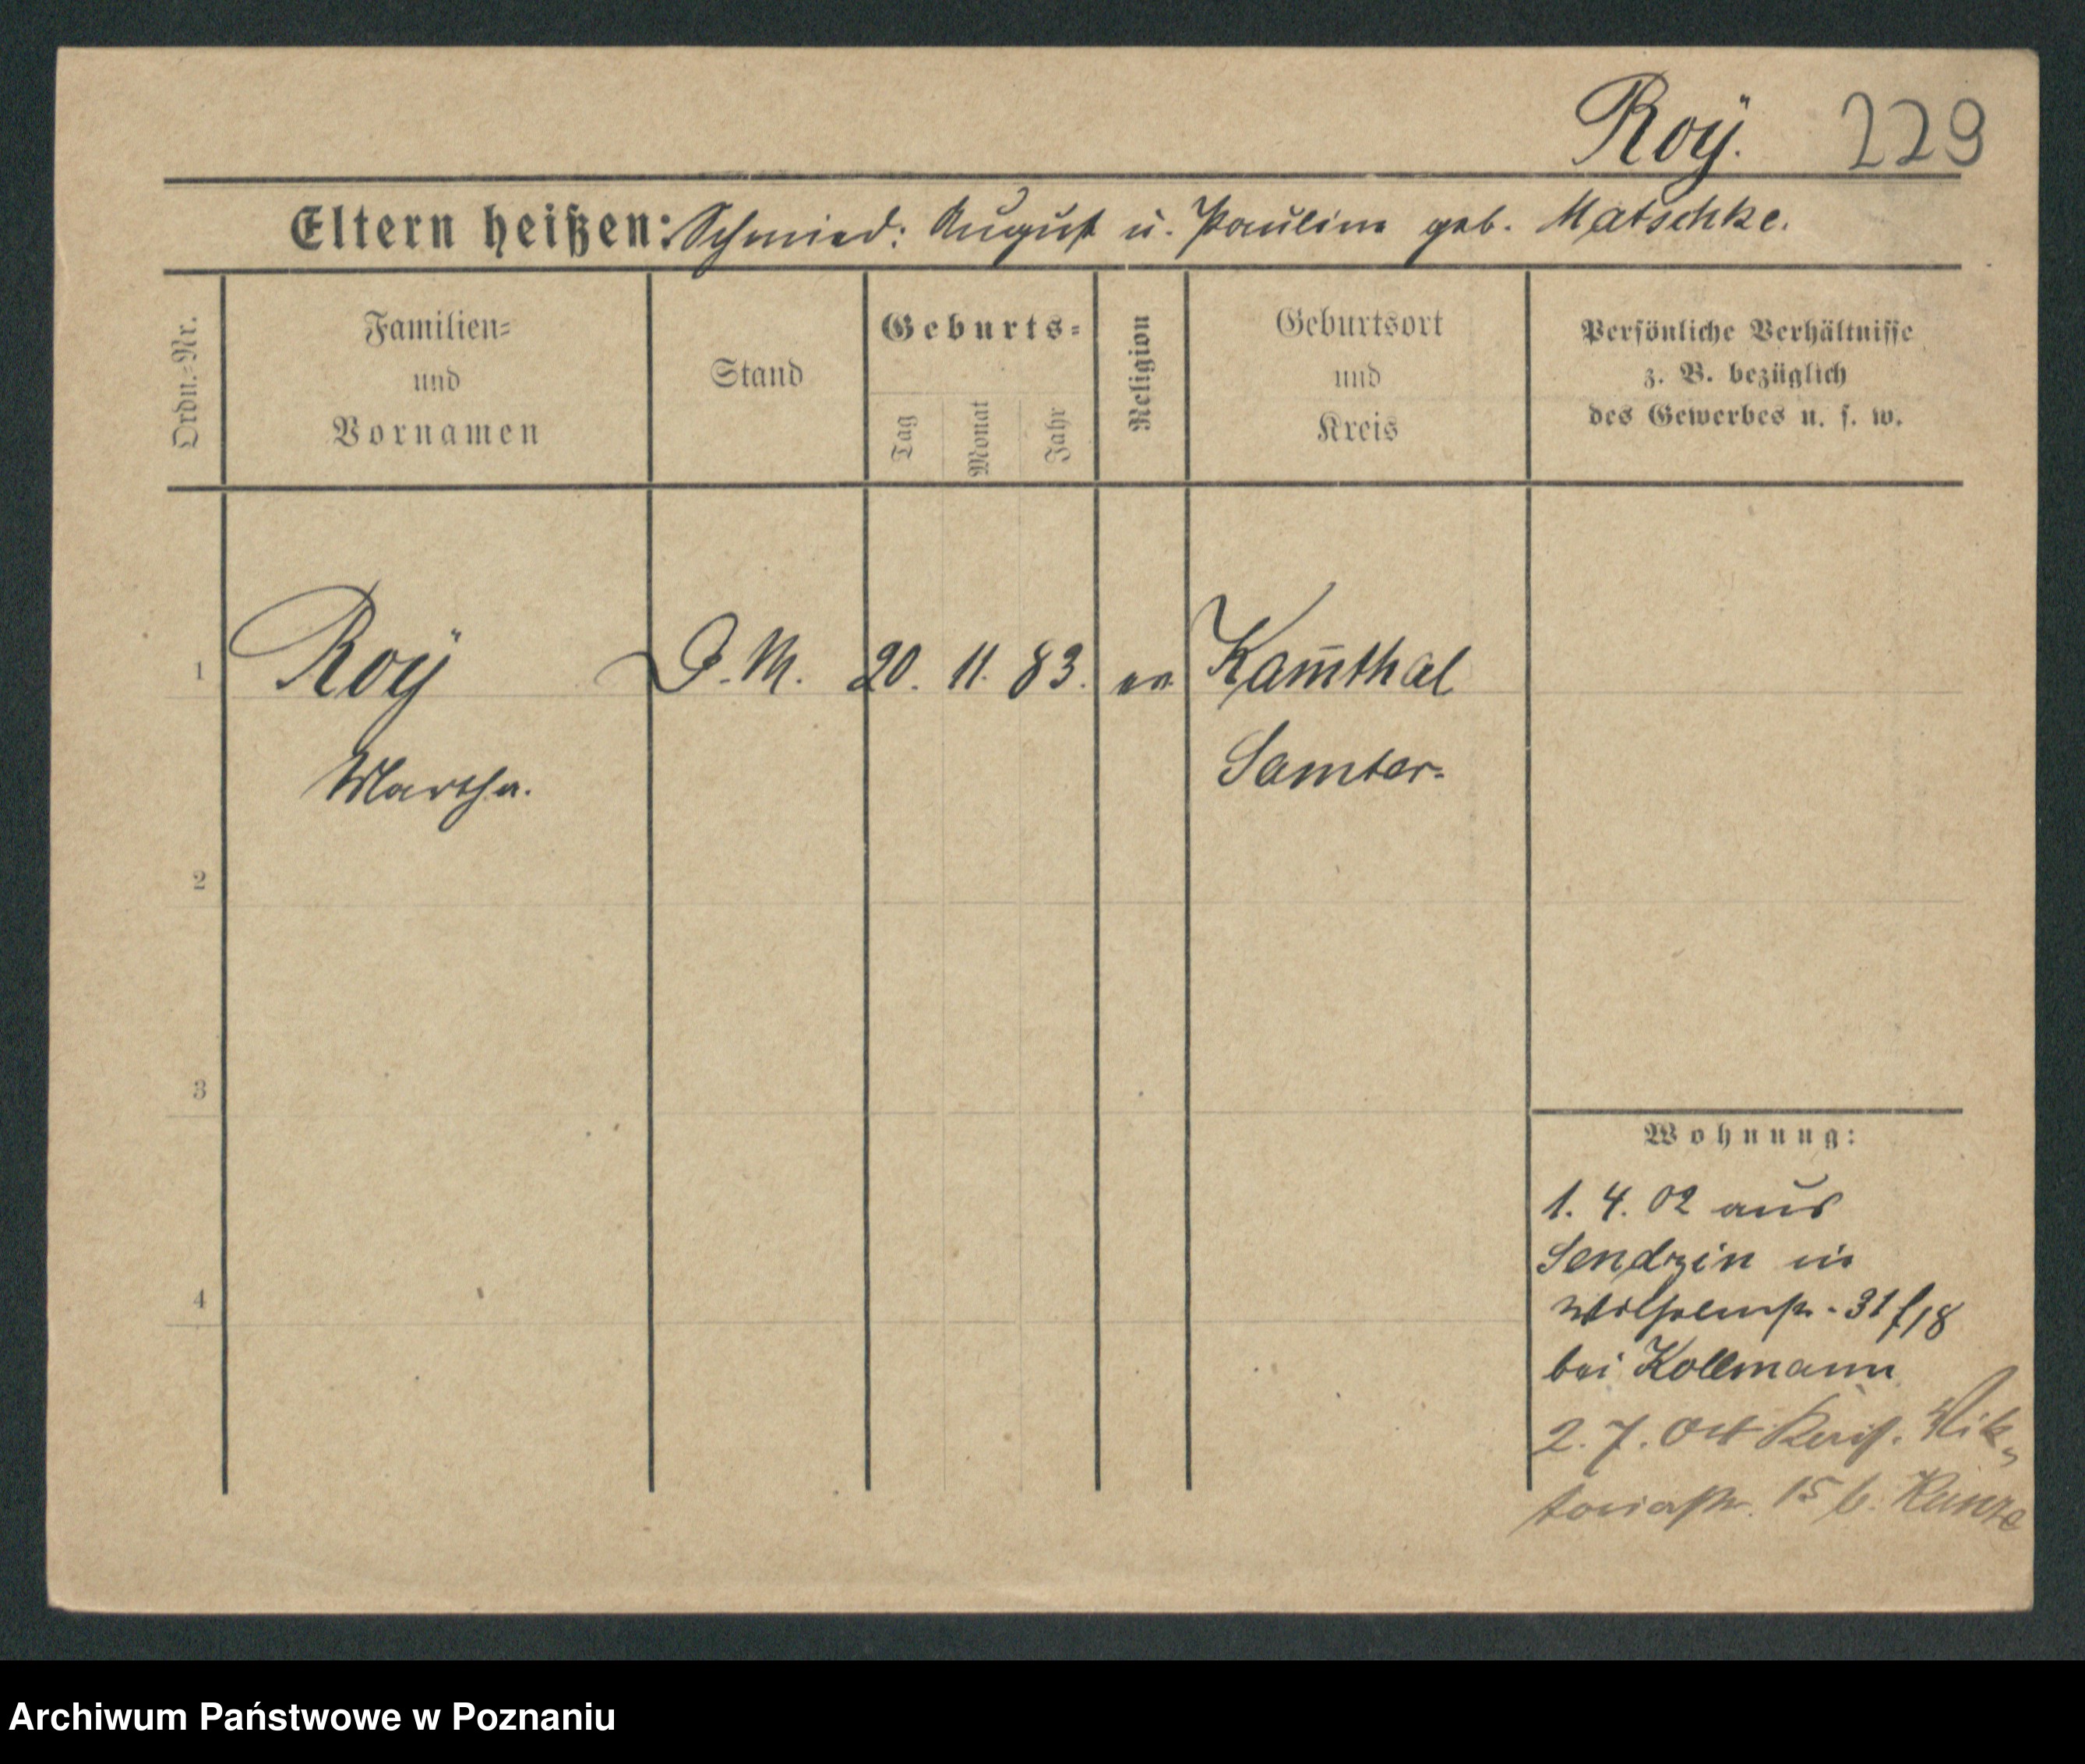 Roÿ. 229
Eltern heißen: Schmied: August u. Pauline geb. Matschke.
Ordn.-Nr.
Familien-
und
Vornamen
Stand
Geburts-
Tag
Monat
Jahr
Religion
Geburtsort
und
Kreis
Persönliche Verhältnisse
z. B. bezüglich
des Gewerbes u. s. w.
1 Roÿ D. M. 20. 11. 83. ev Kam̅thal
Martha. Samter-
2
3
4
Wohnung:
1. 4. 02 aus
Sendzin in
Wilhelmstr. 31 f/18
bei Kollmann
2. 7. Vik-
toriastr. 15 b. Kunze
Archiwum Państwowe w Poznaniu